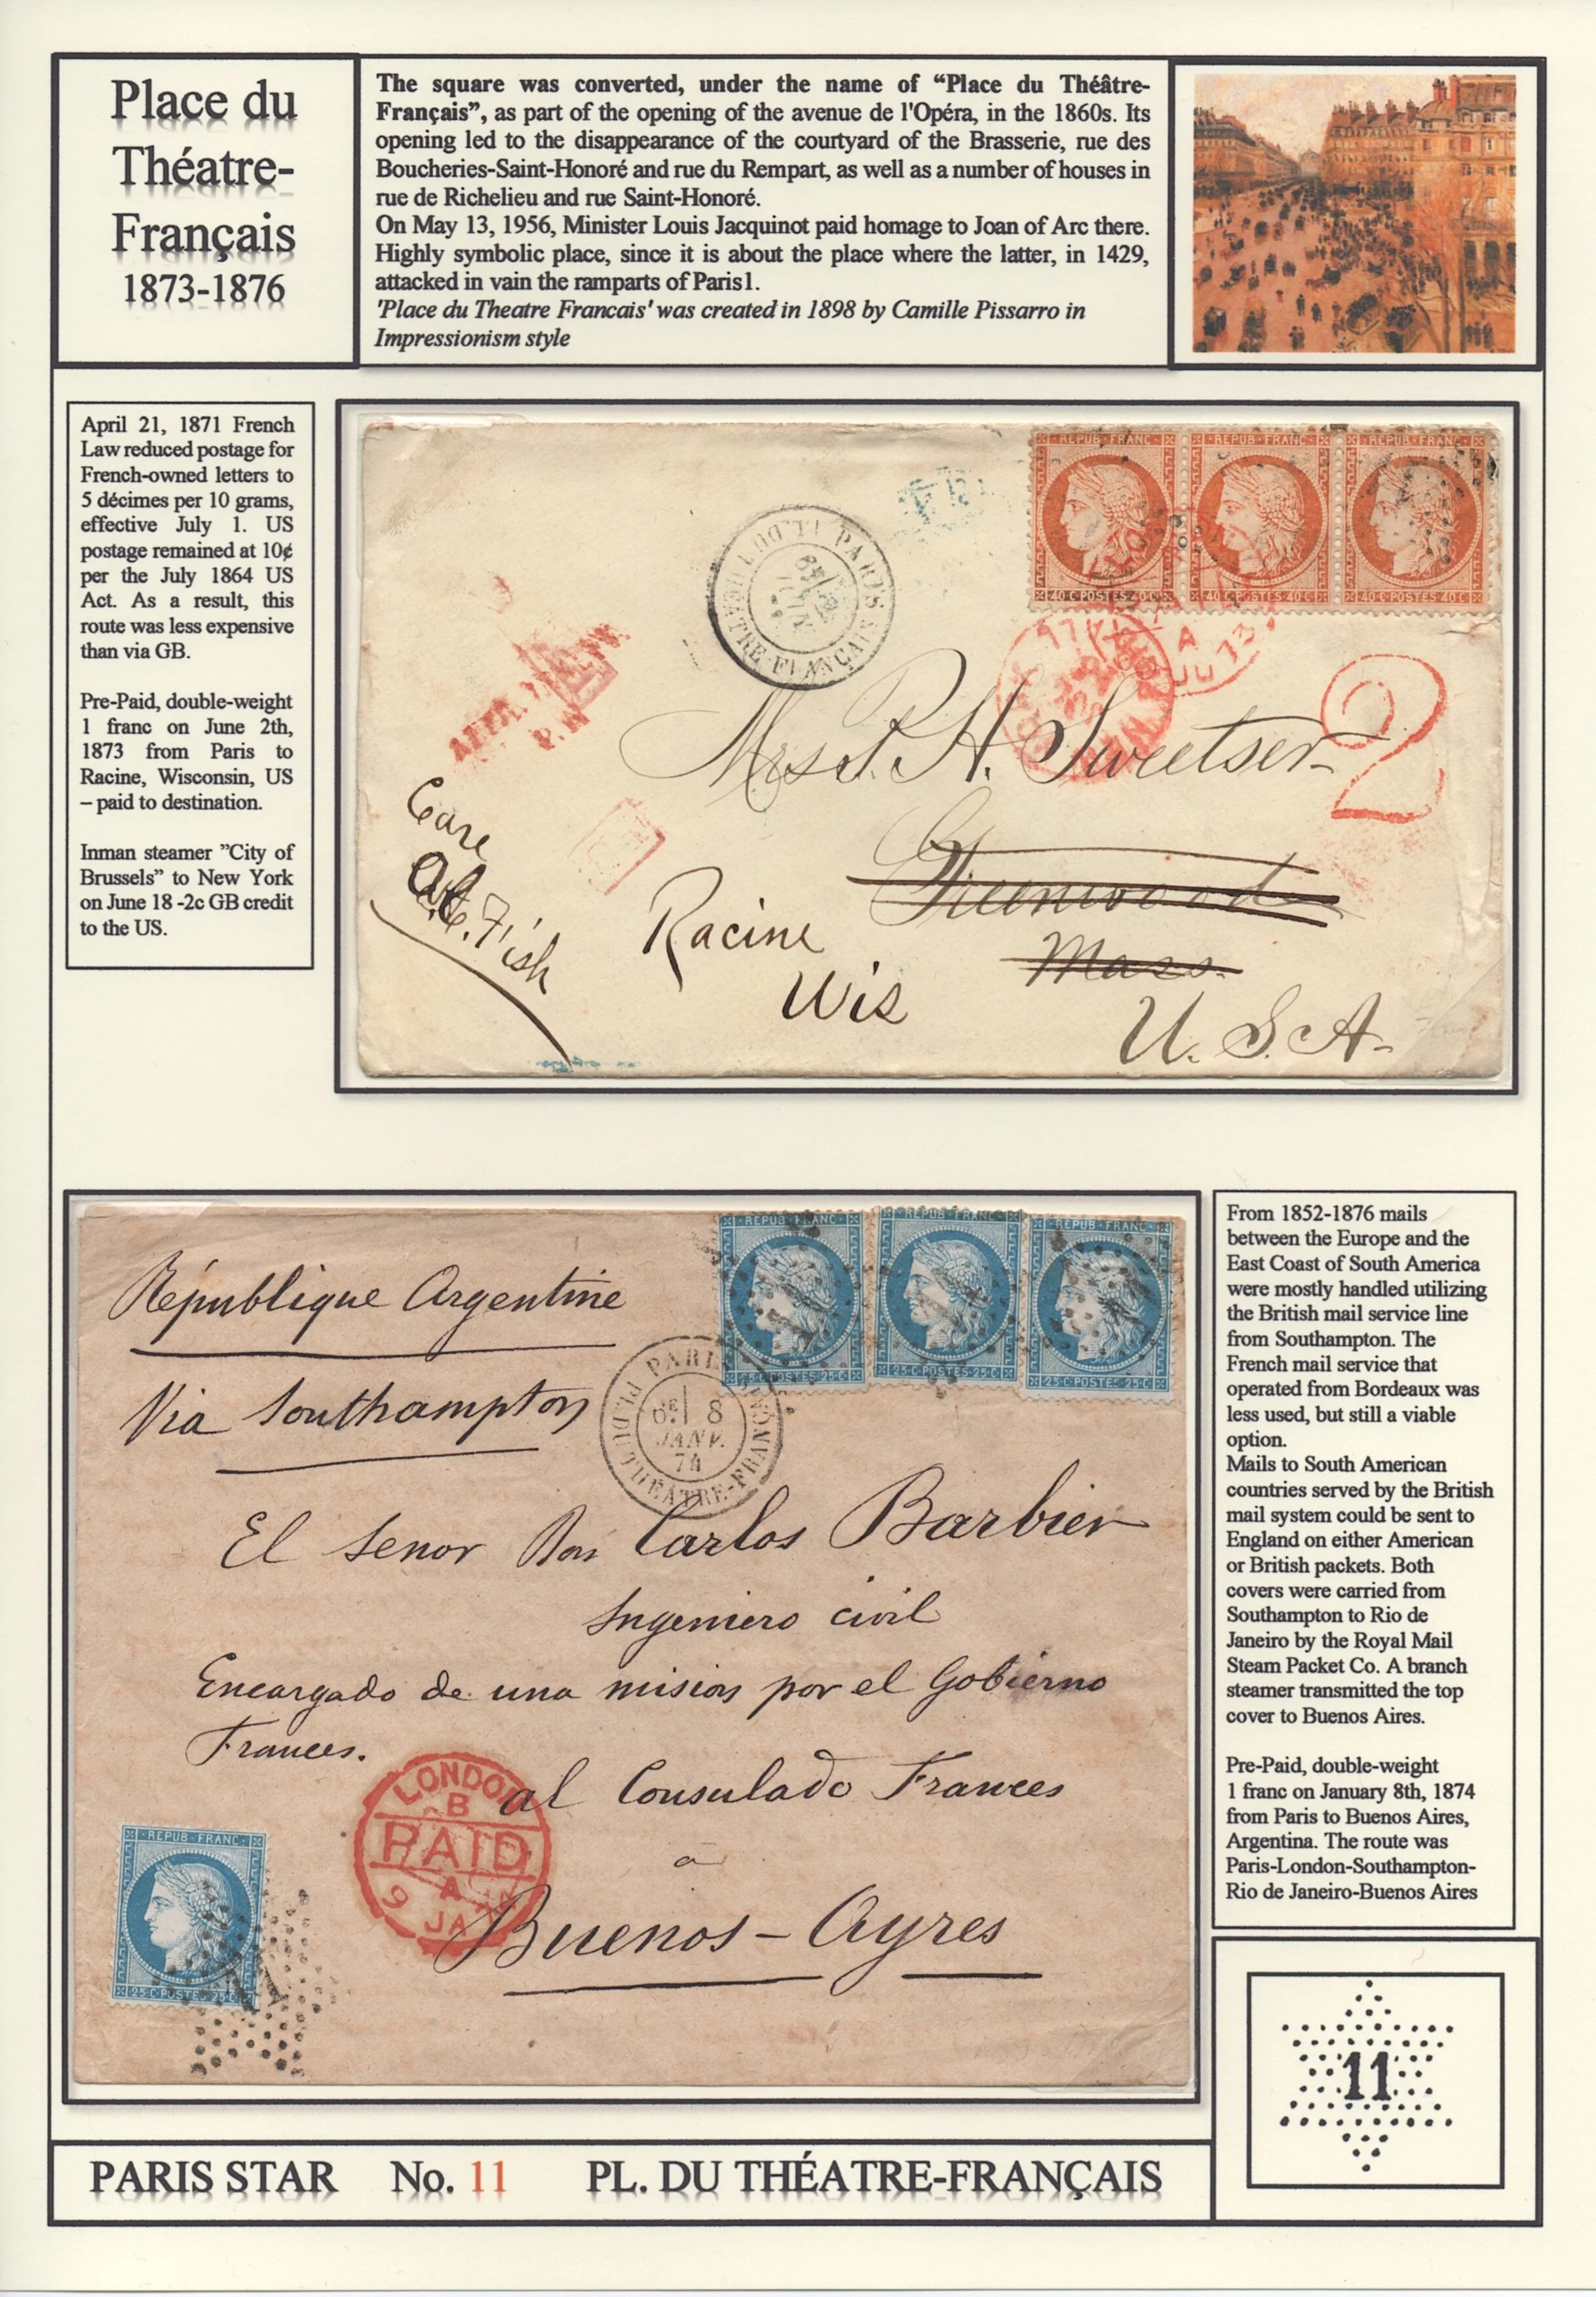 Place du
Théatre-
Français
1873-1876
The square was converted, under the name of “Place du Théâtre-
Français”, as part of the opening of the avenue de l'Opéra, in the 1860s. Its
opening led to the disappearance of the courtyard of the Brasserie, rue des
Boucheries-Saint-Honoré and rue du Rempart, as well as a number of houses in
rue de Richelieu and rue Saint-Honoré.
On May 13, 1956, Minister Louis Jacquinot paid homage to Joan of Arc there.
Highly symbolic place, since it is about the place where the latter, in 1429,
attacked in vain the ramparts of Paris1.
'Place du Theatre Francais' was created in 1898 by Camille Pissarro in
Impressionism style
April 21, 1871 French
Law reduced postage for
French-owned letters to
5 décimes per 10 grams,
effective July 1. US
postage remained at 10¢
per the July 1864 US
Act. As a result, this
route was less expensive
than via GB.
Pre-Paid, double-weight
1 franc on June 2th,
1873 from Paris to
Racine, Wisconsin, US
– paid to destination.
Inman steamer ”City of
Brussels” to New York
on June 18 -2c GB credit
to the US.
REPUB·FRANC·
REPUB·FRANC·
REPUB·FRANC·
40·C·POSTES·40·C
40·C·POSTES·40·C
40·C·POSTES·40·C
PARIS
2
Mrs P. H. Sweetser
Greenwood
Mass.
Care
Fish
Racine
Wis
U. S. A.
REPUB·FRANC·
REPUB·FRANC·
REPUB·FRANC·
25·C·POSTES·25·C
25·C·POSTES·25·C
25·C·POSTES·25·C
République Argentine
Via Southampton
PARIS
8
JANV.
74
PL. DU THÉATRE-FRANÇAIS
El Senor Don Carlos Barbier
Ingeniero civil
Encargado de una mision por el Gobierno
Frances.
al Consulado Frances
a
Buenos-Ayres
LONDON
B
PAID
A
9
JA
REPUB·FRANC·
25·C·POSTES·25·C
From 1852-1876 mails
between the Europe and the
East Coast of South America
were mostly handled utilizing
the British mail service line
from Southampton. The
French mail service that
operated from Bordeaux was
less used, but still a viable
option.
Mails to South American
countries served by the British
mail system could be sent to
England on either American
or British packets. Both
covers were carried from
Southampton to Rio de
Janeiro by the Royal Mail
Steam Packet Co. A branch
steamer transmitted the top
cover to Buenos Aires.
Pre-Paid, double-weight
1 franc on January 8th, 1874
from Paris to Buenos Aires,
Argentina. The route was
Paris-London-Southampton-
Rio de Janeiro-Buenos Aires
11
PARIS STAR No. 11 PL. DU THÉATRE-FRANÇAIS